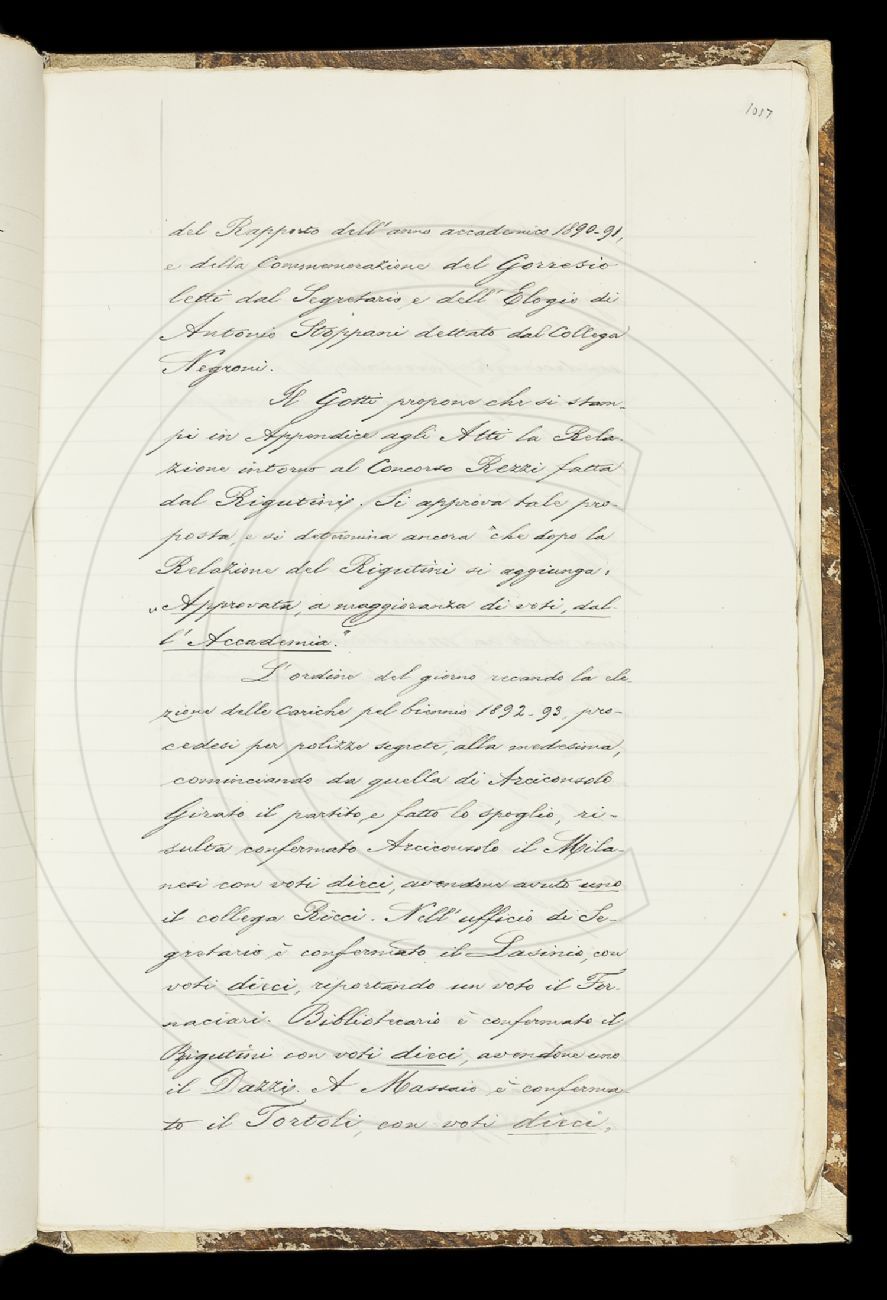 1017
del Rapporto dell'anno accademico 1890-91,
e della Commemorazione del Gorresio
letti dal Segretario, e dell'Elogio di
Antonio Stoppani dettato dal Collega
Negroni.
Il Gotti propone che si stam-
pi in Appendice agli Atti la Rela-
zione intorno al Concorso Rezzi fatta
dal Rigutini. Si approva tale pro-
posta, e si determina ancora "che dopo la
Relazione del Rigutini si aggiunga:
"Approvata, a maggioranza di voti, dal-
l'Accademia."
L'ordine del giorno recando la ele-
zione delle cariche pel biennio 1892-93, pro-
cedesi per polizze segrete, alla medesima,
cominciando da quella di Arciconsolo
Girato il partito, e fatto lo spoglio, ri-
sulta confermato Arciconsolo il Mila-
nesi con voti dieci, avendone avuto uno
il collega Ricci. Nell'ufficio di Se-
gretario è confermato il Lasinio, con
voti dieci, riportando un voto il For-
naciari. Bibliotecario è confermato il
Rigutini con voti dieci, avendone uno
il Dazzi. A Massaio è conferma-
to il Tortoli, con voti dieci,